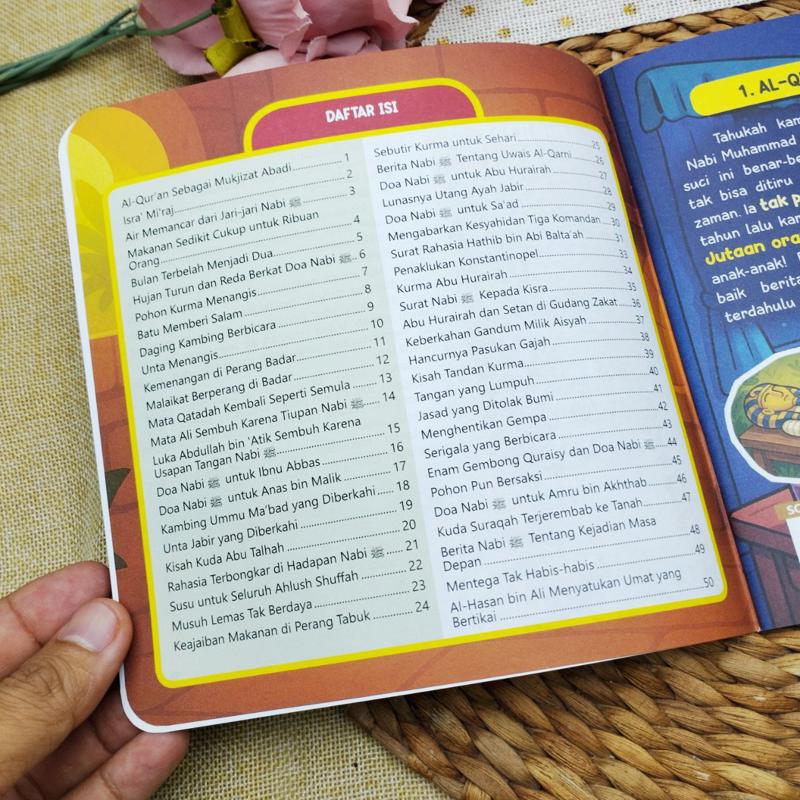 DAFTAR ISI
Al-Qur'an Sebagai Mukjizat Abadi 1
Isra' Mi'raj 2
Air Memancar dari Jari-jari Nabi ﷺ 3
Makanan Sedikit Cukup untuk Ribuan
Orang 4
Bulan Terbelah Menjadi Dua 5
Hujan Turun dan Reda Berkat Doa Nabi ﷺ 6
Pohon Kurma Menangis 7
Batu Memberi Salam 8
Daging Kambing Berbicara 9
Unta Menangis 10
Kemenangan di Perang Badar 11
Malaikat Berperang di Badar 12
Mata Qatadah Kembali Seperti Semula 13
Mata Ali Sembuh Karena Tiupan Nabi ﷺ 14
Luka Abdullah bin 'Atik Sembuh Karena
Usapan Tangan Nabi ﷺ 15
Doa Nabi ﷺ untuk Ibnu Abbas 16
Doa Nabi ﷺ untuk Anas bin Malik 17
Kambing Ummu Ma'bad yang Diberkahi 18
Unta Jabir yang Diberkahi 19
Kisah Kuda Abu Talhah 20
Rahasia Terbongkar di Hadapan Nabi ﷺ 21
Susu untuk Seluruh Ahlush Shuffah 22
Musuh Lemas Tak Berdaya 23
Keajaiban Makanan di Perang Tabuk 24
Sebutir Kurma untuk Sehari 25
Berita Nabi ﷺ Tentang Uwais Al-Qarni 26
Doa Nabi ﷺ untuk Abu Hurairah 27
Lunasnya Utang Ayah Jabir 28
Doa Nabi ﷺ untuk Sa'ad 29
Mengabarkan Kesyahidan Tiga Komandan 30
Surat Rahasia Hathib bin Abi Balta'ah 31
Penaklukan Konstantinopel 33
Kurma Abu Hurairah 34
Surat Nabi ﷺ Kepada Kisra 35
Abu Hurairah dan Setan di Gudang Zakat 36
Keberkahan Gandum Milik Aisyah 37
Hancurnya Pasukan Gajah 38
Kisah Tandan Kurma 39
Tangan yang Lumpuh 40
Jasad yang Ditolak Bumi 41
Menghentikan Gempa 42
Serigala yang Berbicara 43
Enam Gembong Quraisy dan Doa Nabi ﷺ 44
Pohon Pun Bersaksi 45
Doa Nabi ﷺ untuk Amru bin Akhthab 46
Kuda Suraqah Terjerembab ke Tanah 47
Berita Nabi ﷺ Tentang Kejadian Masa
Depan 48
Mentega Tak Habis-habis 49
Al-Hasan bin Ali Menyatukan Umat yang
Bertikai 50
1. AL-Q
Tahukah kam
Nabi Muhammad
suci ini benar-be
tak bisa ditiru
zaman. Ia tak p
tahun lalu kan
Jutaan ora
anak-anak!
baik berita
terdahulu